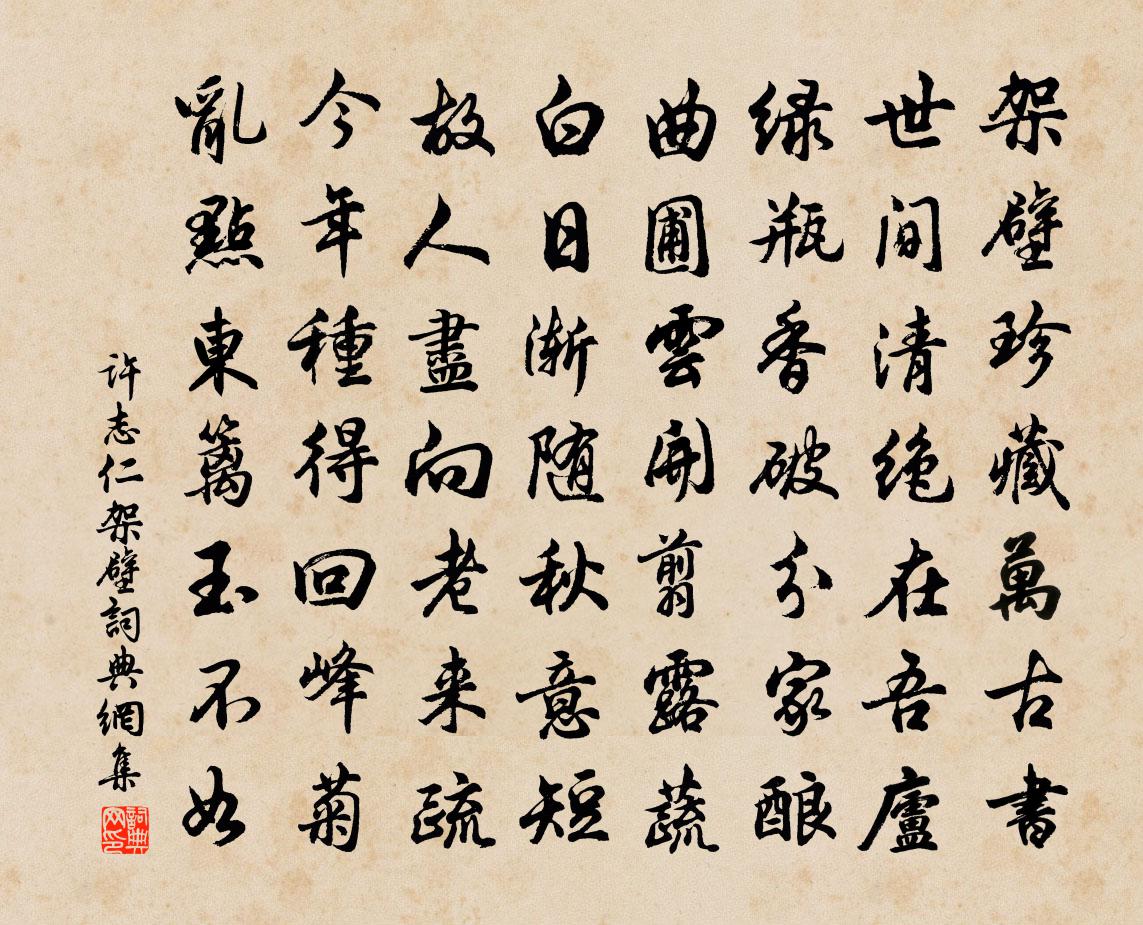 架壁珍藏萬古書
世间清绝在吾廬
绿瓶香破分家酿
曲圃雲開剪露蔬
白日渐随秋意短
故人盡向老来疏
今年種得回峰菊
亂點東篱玉不如
许志仁架壁詞典網集
詞典网印